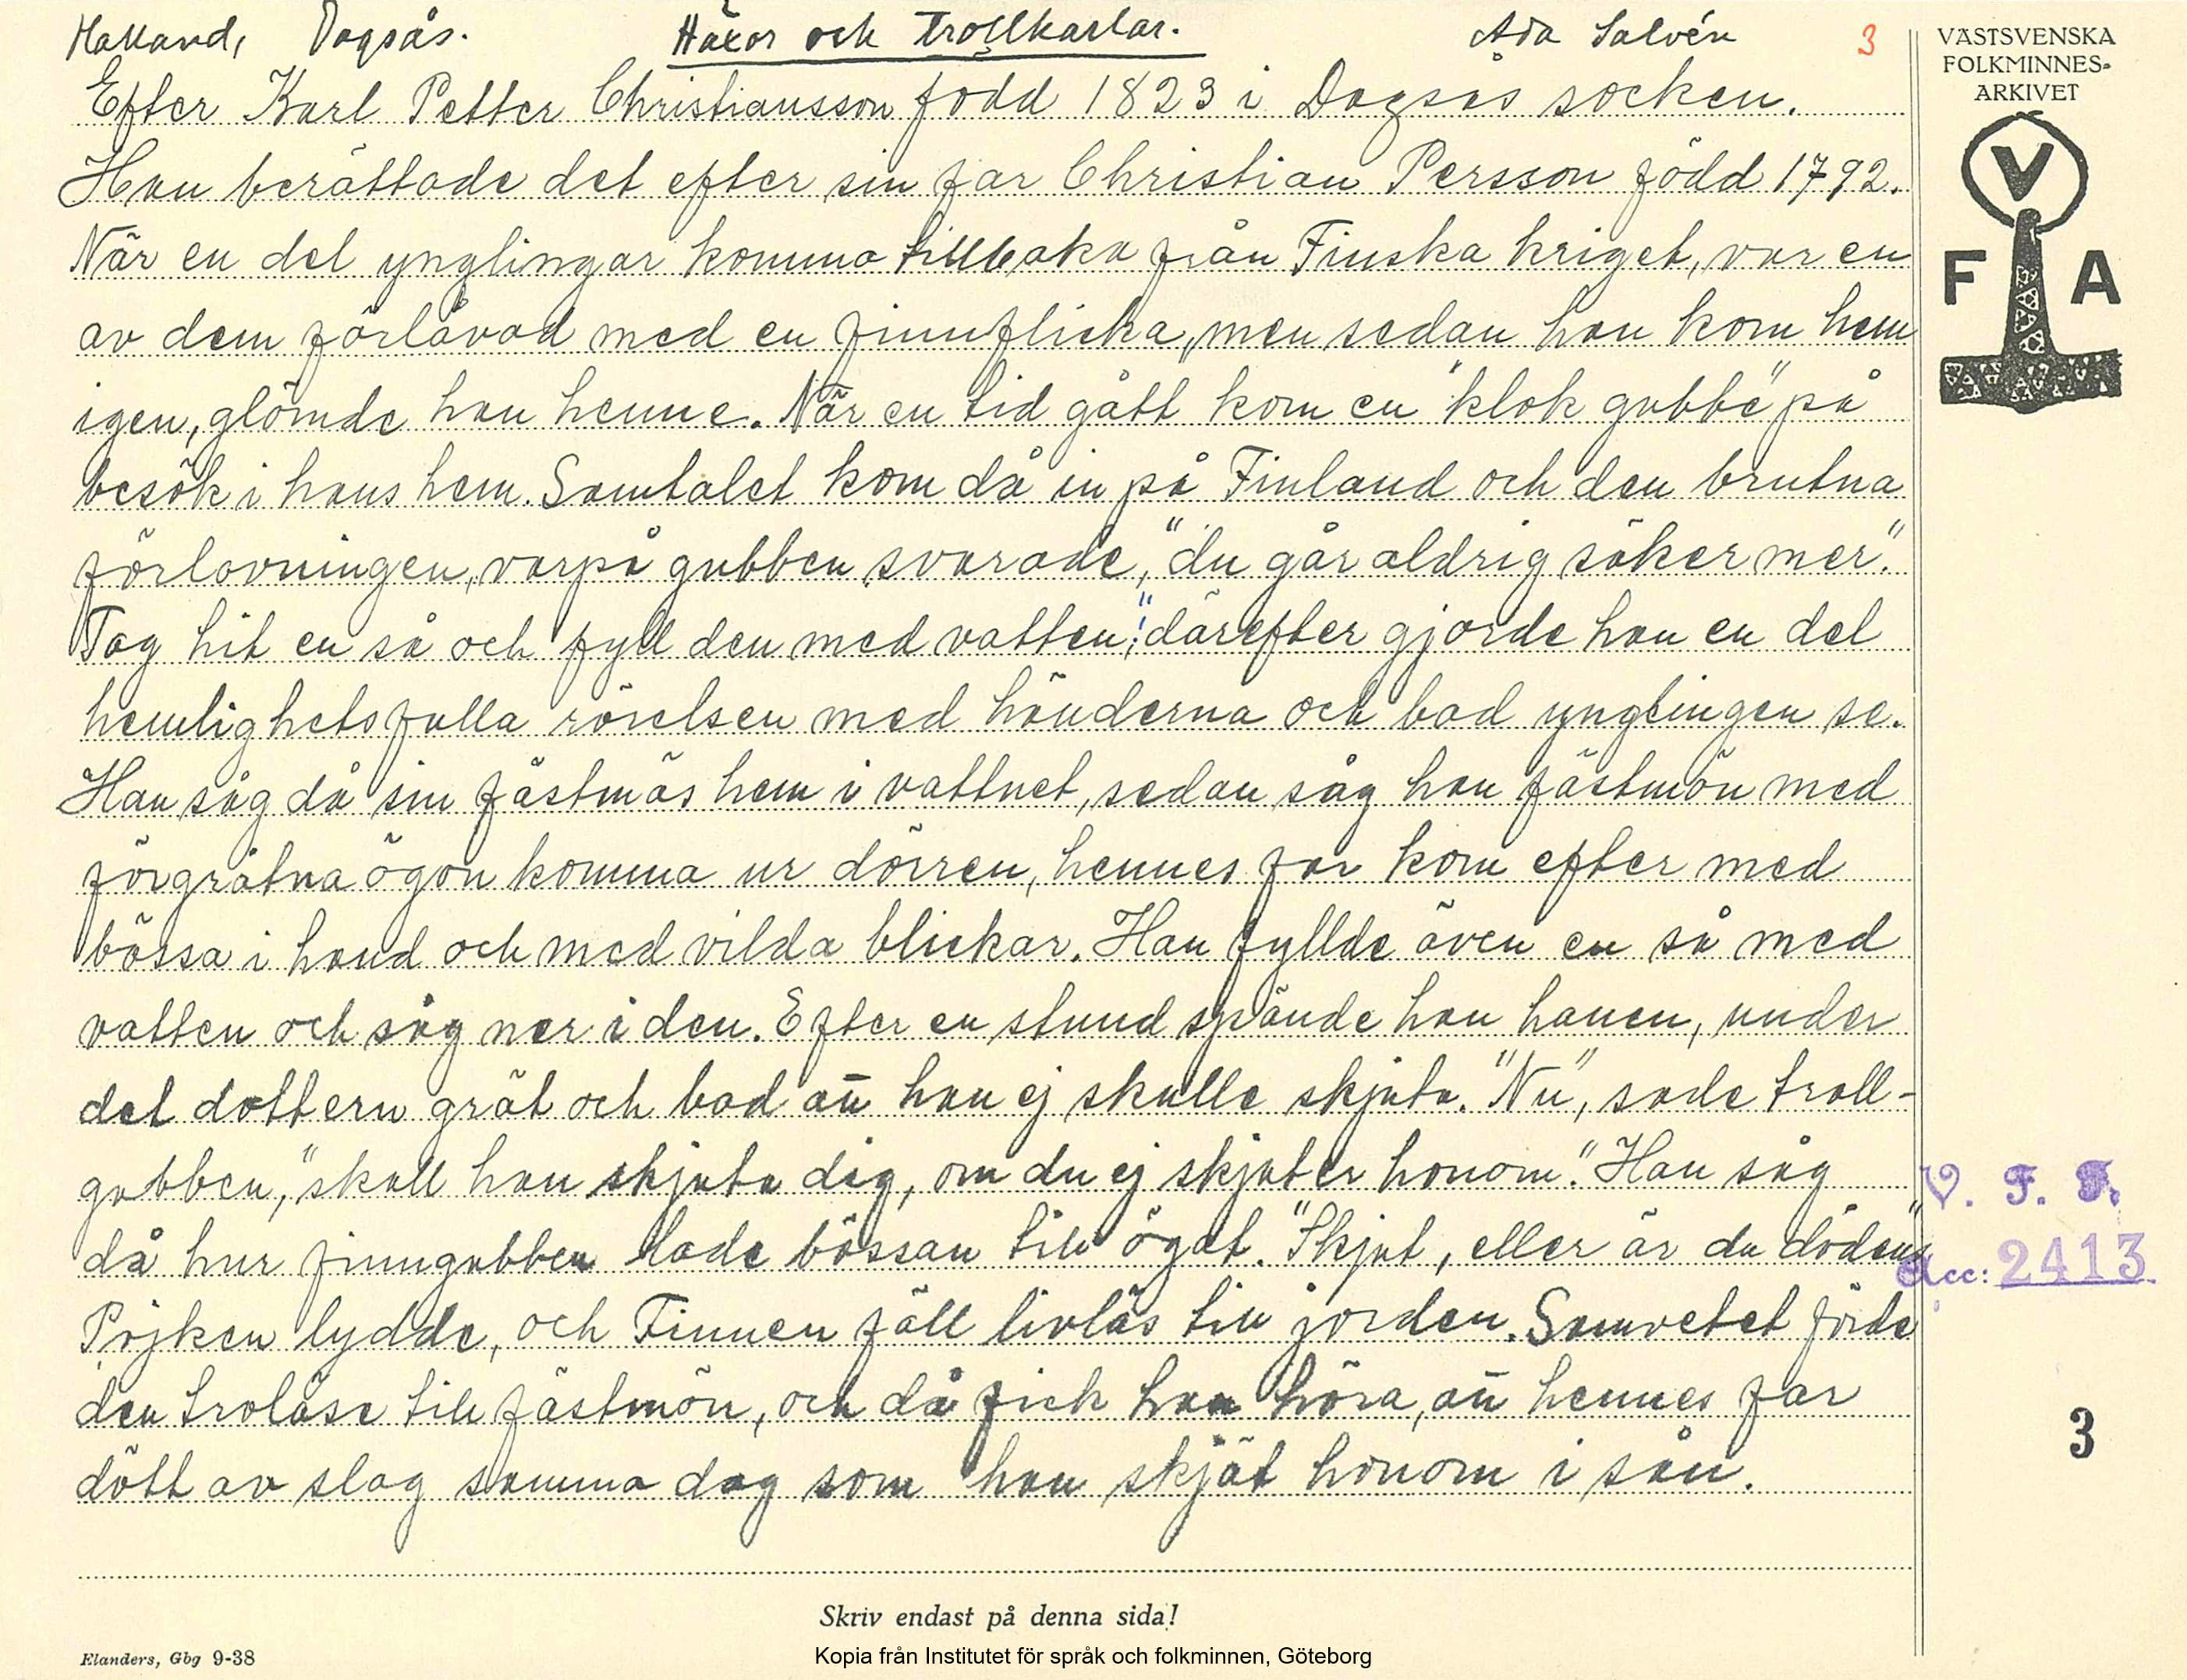 Halland, Dagsås. Häxor och Trollkarlar. Ada Salvén 3
Efter Karl Petter Christiansson född 1823 i Dagsås socken.
Han berättade det efter sin far Christian Persson född 1792.
När en del ynglingar komma tillbaka från Finska kriget, var en
av dem förlåvad med en finnflicka, men sedan han kom hem
igen, glömde han henne. När en tid gått kom en "klok gubbe" på
besök i hans hem. Samtalet kom då in på Finland och den brutna
förlovningen, varpå gubben svarade, "du går aldrig säker mer."
Tag hit en så och fyll den med vatten;" därefter gjorde han en del
hemlighetsfulla rörelsen med händerna och bad ynglingen se.
Han såg då sin fästmös hem i vattnet, sedan såg han fästmön med
förgråtna ögon komma ur dörren, hennes far kom efter med
bössa i hand och med vilda blickar. Han fyllde även en så med
vatten och såg ner i den. Efter en stund spände han hanen, under
det dottern grät och bad att han ej skulle skjuta. "Nu", sade troll-
gubben, "skall han skjuta dig, om du ej skjuter honom." Han såg
då hur finngubben lade bössan till ögat. "Skjut, eller är du dödens"
Pojken lydde, och Finnen föll livlös till jorden. Samvetet förde
den trolöse till fästmön, och då fick han höra, att hennes far
dött av slag samma dag som han skjöt honom i sån.
Skriv endast på denna sida!
Elanders, Gbg 9-38
Kopia från Institutet för språk och folkminnen, Göteborg
VÄSTSVENSKA
FOLKMINNES-
ARKIVET
V
F A
V. F. F.
Acc: 2413
3